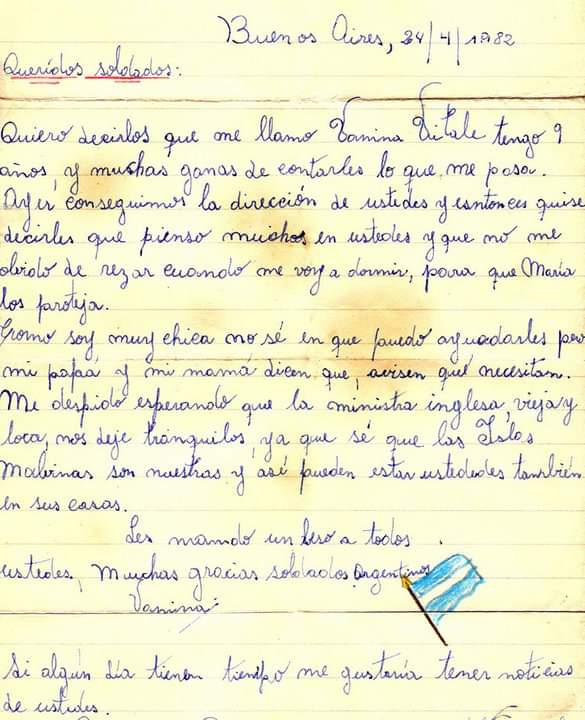 Buenos Aires, 24/4/1982
Queridos soldados:
Quiero decirlos que me llamo Vanina Vitale tengo 9
años, y muchas ganas de contarles lo que me pasa.
Ayer conseguimos la dirección de ustedes y entonces quise
decirles que pienso muchos en ustedes y que no me
olvido de rezar cuando me voy a dormir, para que María
los proteja.
Como soy muy chica no sé en que puedo ayuadarles pero
mi papá y mi mamá dicen que, avisen qué necesitan.
Me despido esperando que la ministra inglesa, vieja y
loca, nos deje tranquilos, ya que sé que las Islas
Malvinas son nuestras y así pueden estar ustededes también
en sus casas.
Les mando un beso a todos
ustedes, Muchas gracias soldados Argentinos
Vanina
Si algún día tienen tiempo me gustaría tener noticias
de ustedes.